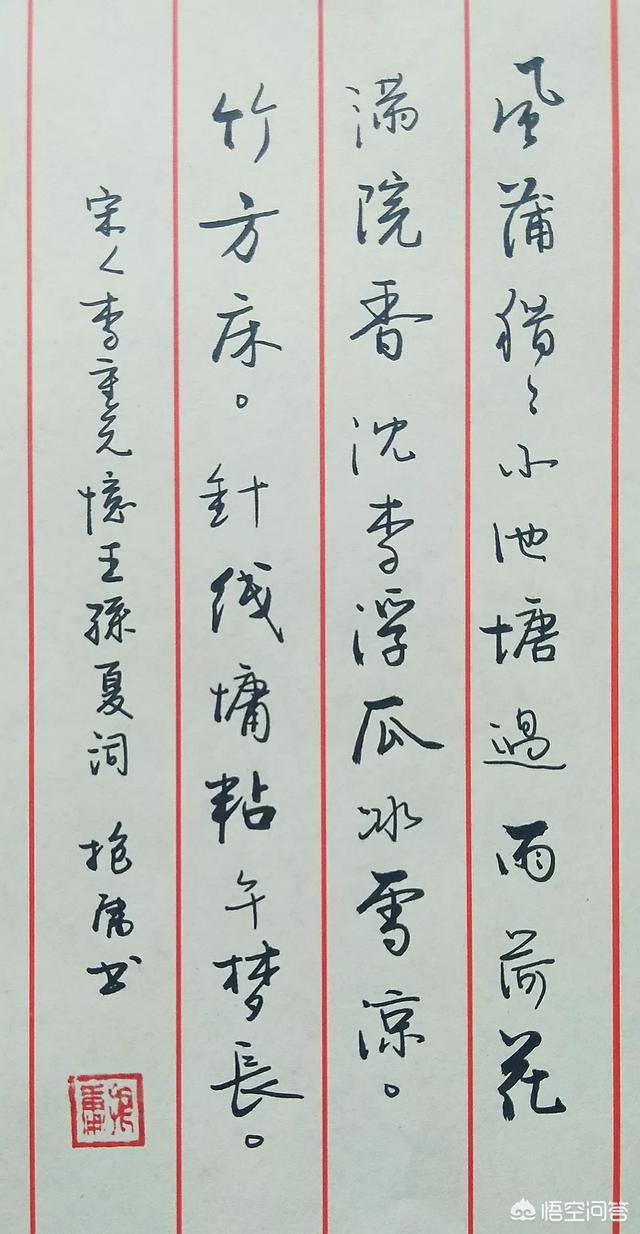 風蒲猎〻小池塘過雨荷花
满院香沈李浮瓜冰雪凉。
竹方床。針线慵粘午梦長。
宋人李重元憶王孫夏词 抱庸书
抱庸
悟空问答